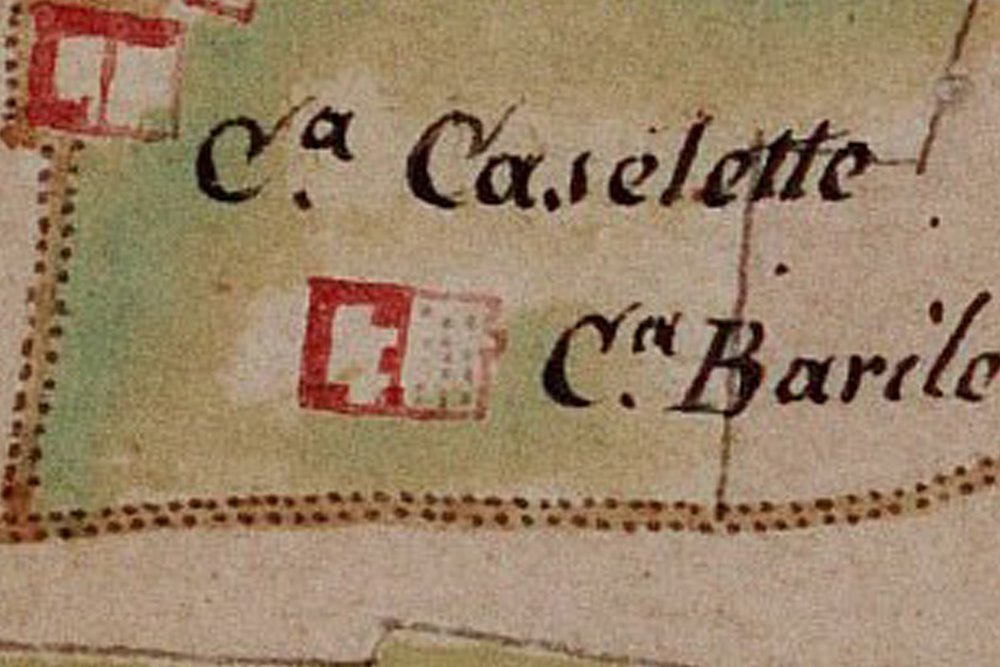 C.ª Caselette
C.ª Barilo